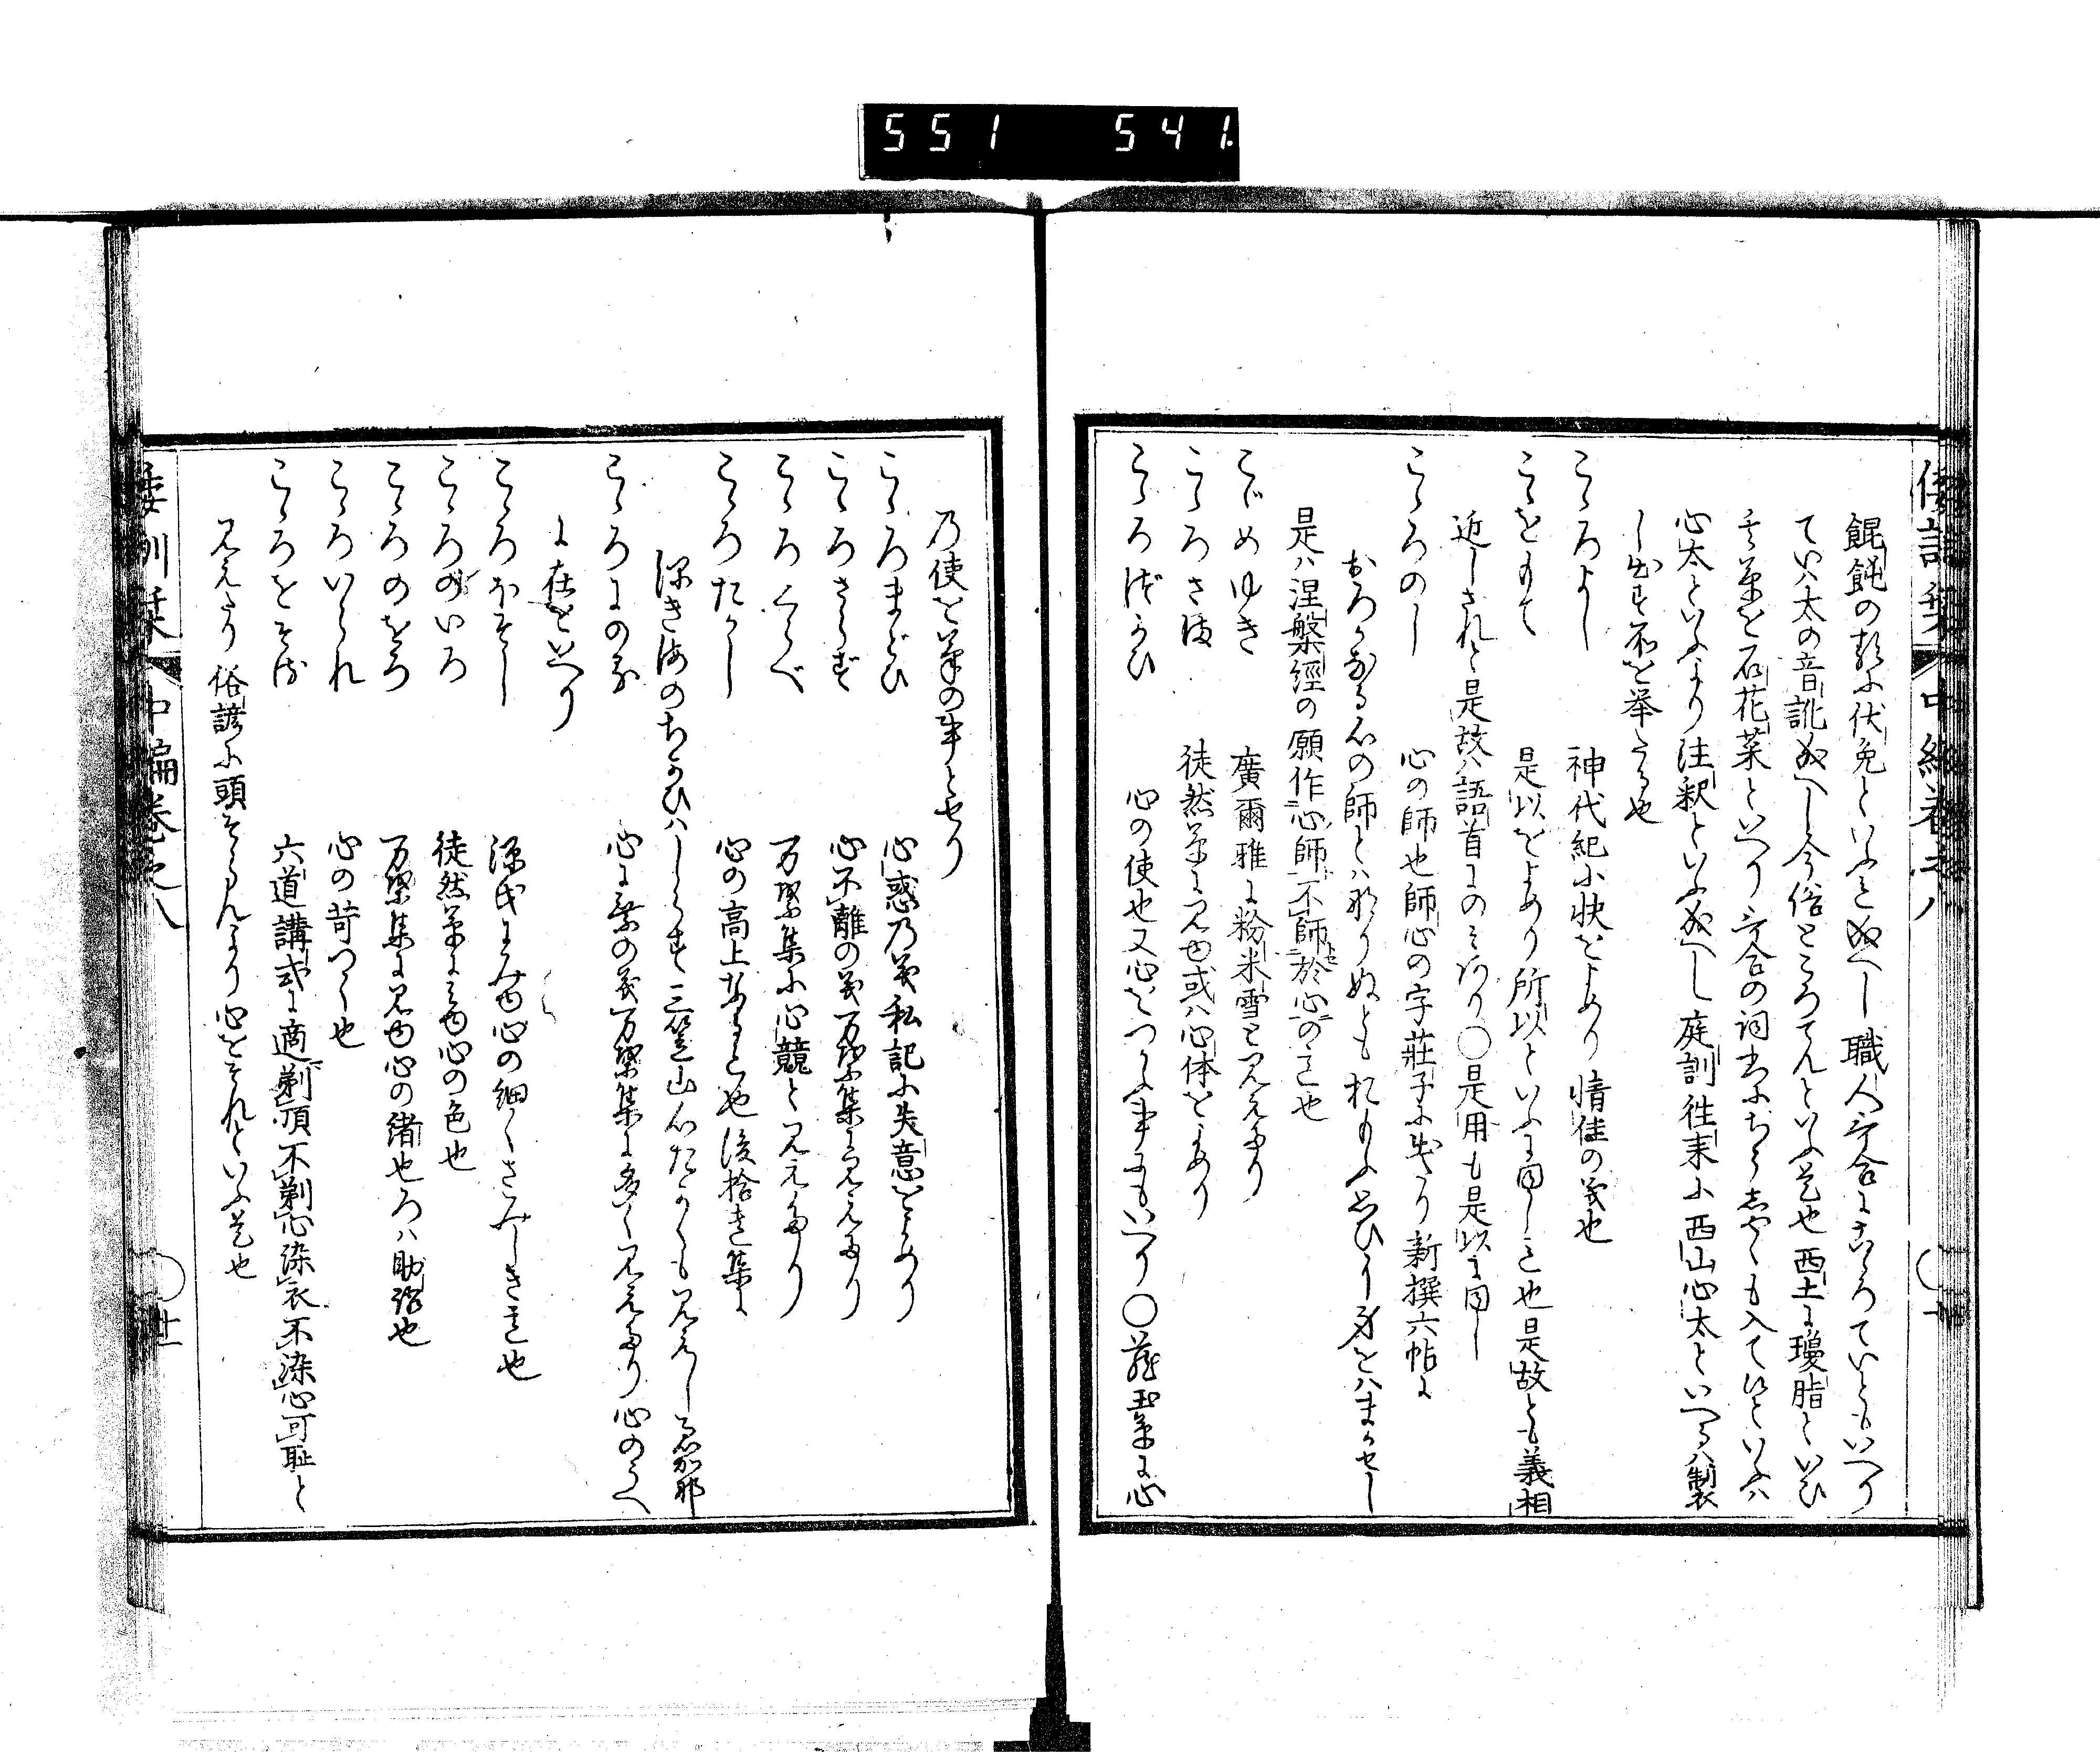 551 541
餛飩の類に伏兎といふこ成へし職人歌合にこゝろていともいへり
ていハ太の音訛成へし今俗ところてんといふ是也西土に瓊脂といひ
又石花菜といへり歌合の詞
心太といふより注釈といふ成へし庭訓往来に西山心太といへるハ製
し出す所を挙たる也
こゝろよし 神代紀に快をよめり情佳の義也
こゝをもて 是以をよめり所以といふに同しき也是故とも義相
近しされと是故ハ語首にのみあり〇是用も是以に同し
こゝろのし 心の師也師心の字荘子に出たり新撰六帖に
おろかなる心の師とハなりぬともおもふ思ひに身をハまかせし
是ハ涅槃經の願作心師不師於心の意也
こゞめゆき 廣爾雅に粉米雪と見えたり
こゝろさま 徒然草に見ゆ或ハ心体をよめり
こゝろづかひ 心の使也又心をつかふ事にもいへり〇藻塩草に心
倭訓栞 中編巻之八
乃使を筆の事とせり
こゝろまどひ 心惑乃義私記に失意をよめり
こゝろさらず 心不離の義万葉集に見えたり
こゝろくらべ 万葉集に心競と見えたり
こゝろたかし 心の高上なるを也後拾遺集に
深き海のちかひハしらす三笠山心たかくも見えし君哉
こゝろにのる 心に乗の義万葉集に多く見えたり心のうへ
に在をいへり
こゝろぼそし 源氏にみゆ心の細くさみしき意也
こゝろのいろ 徒然草にみゆ心の色也
こゝろのをろ 万葉集に見ゆ心の緒也ろハ助語也
こゝろいられ 心の苛つく也
こゝろをそる 六道講式に適剃頂不剃心染衣不染心可恥と
見えたり俗諺に頭そるより心をそれといふ是也
倭訓栞 中編巻之八 〇 卅